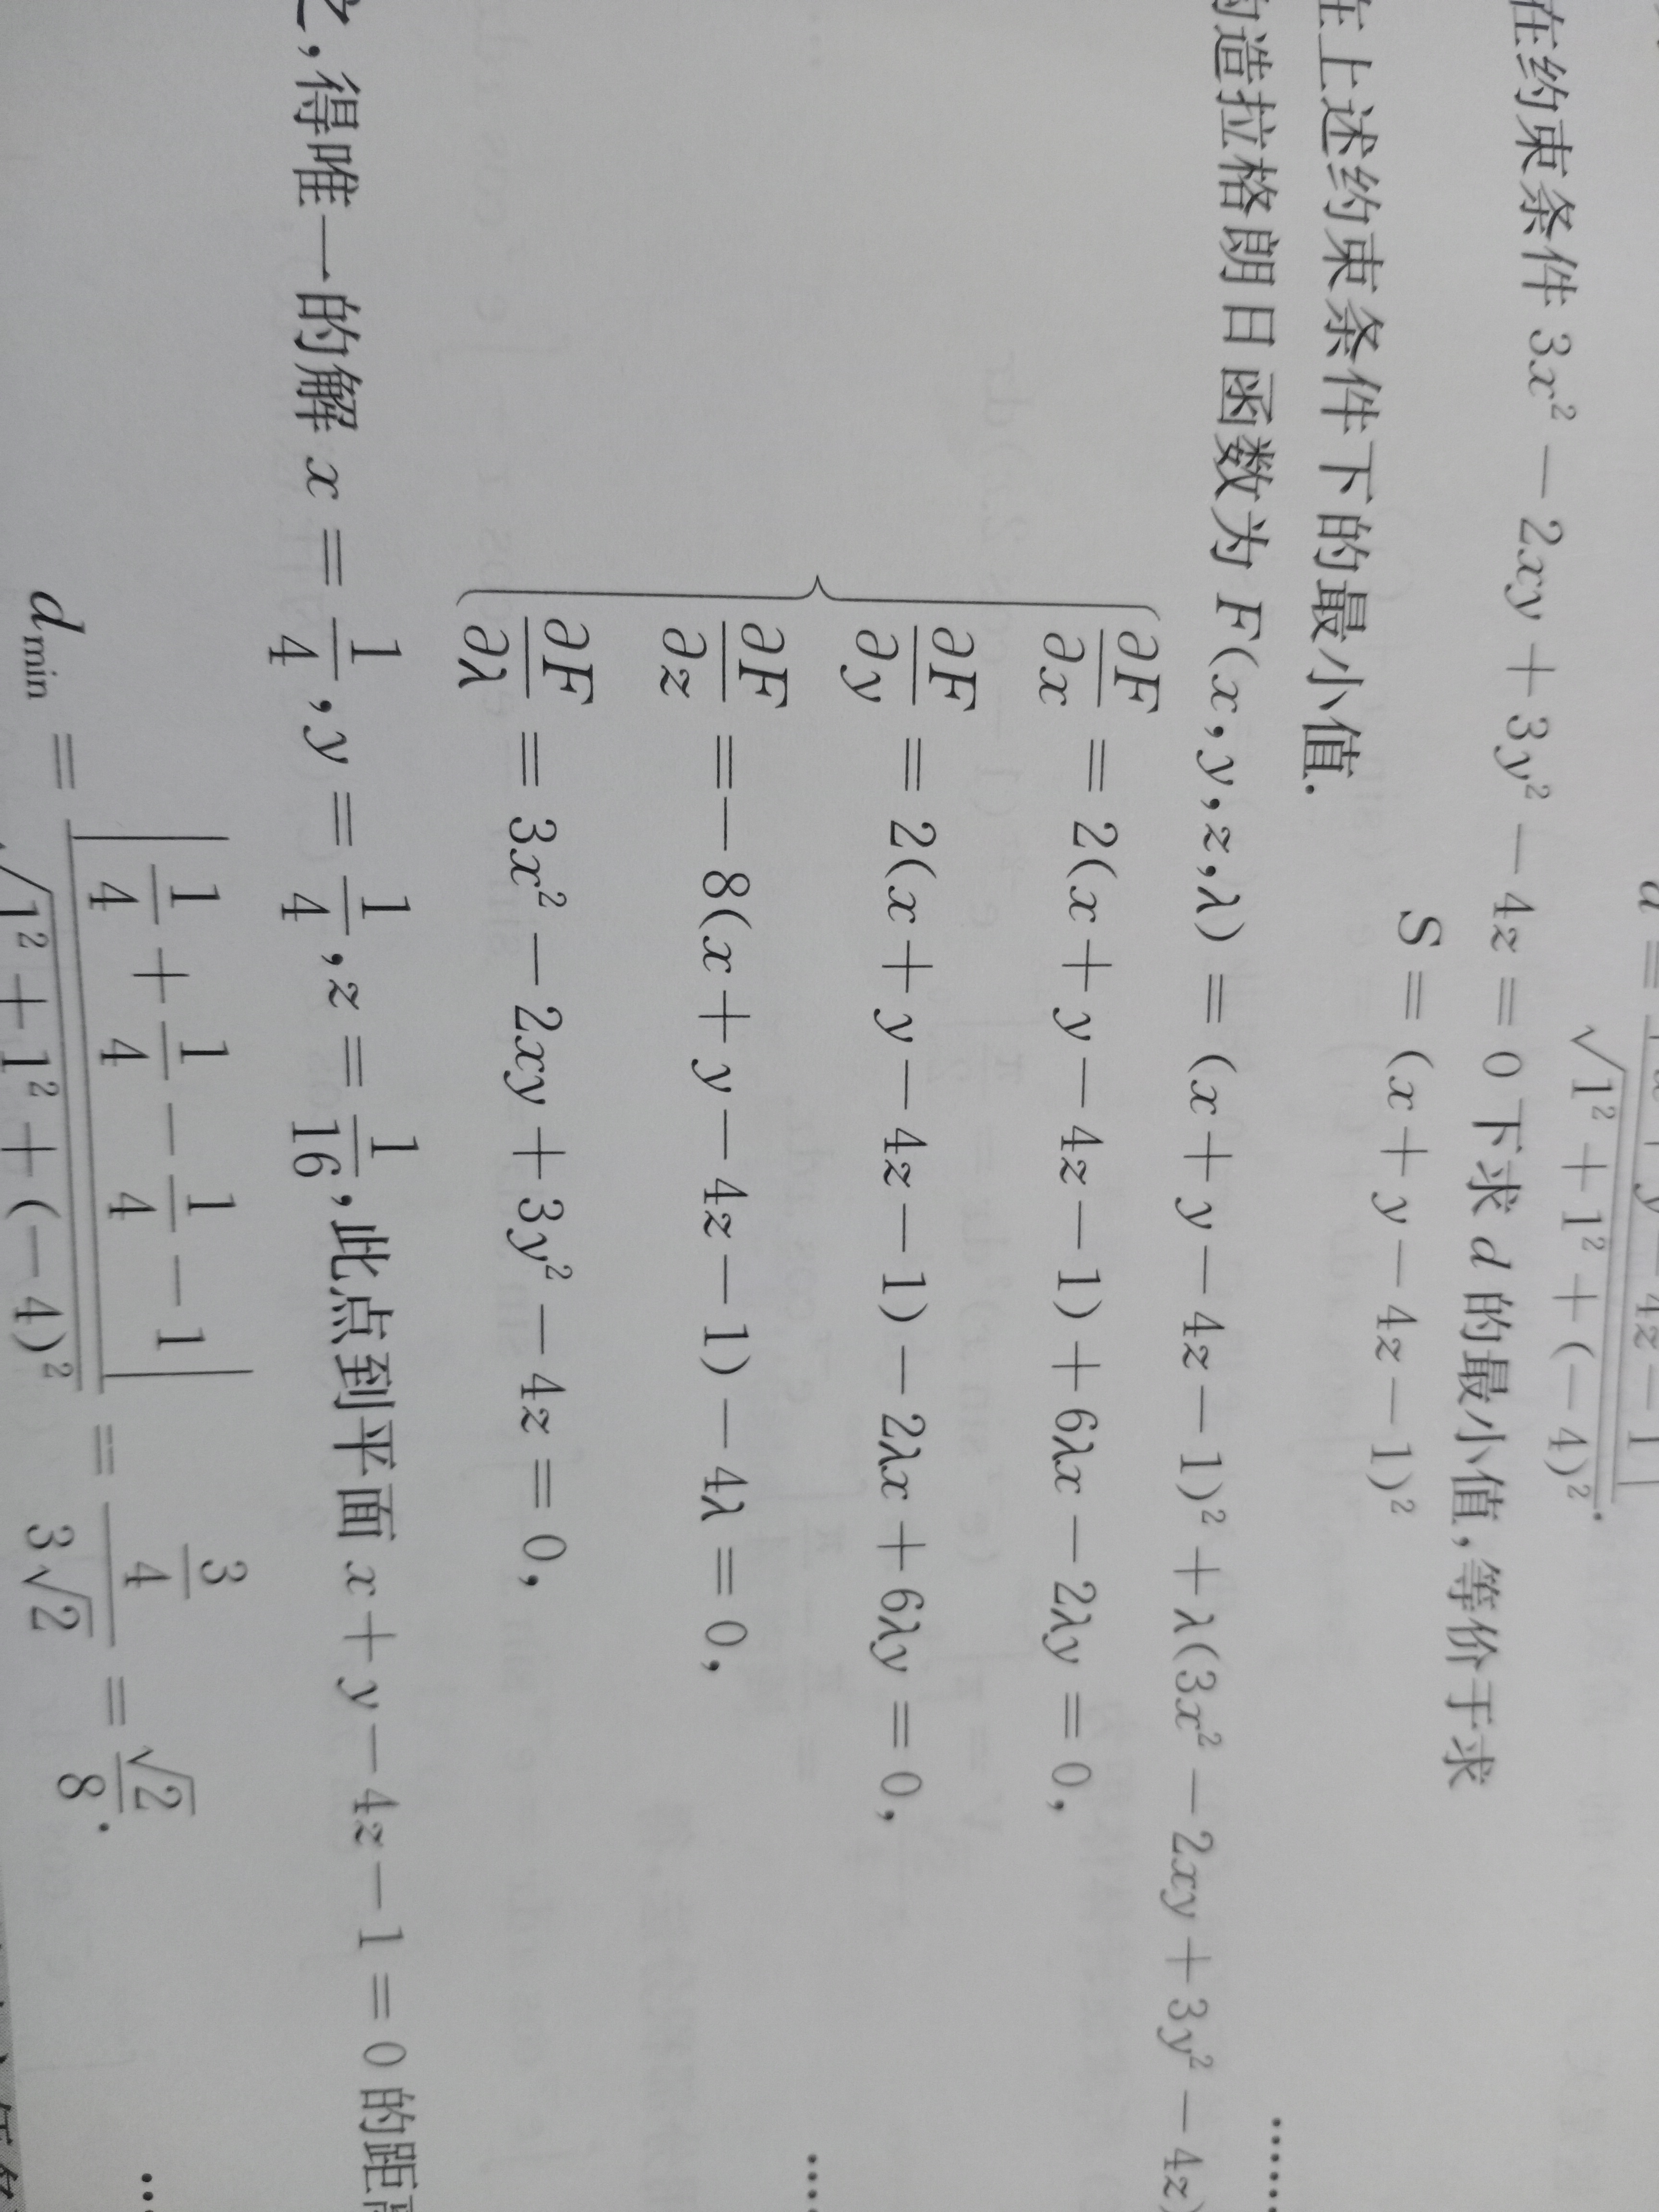 d = |x + y − 4z − 1| / √(1² + 1² + (−4)²).
在约束条件 3x² − 2xy + 3y² − 4z = 0 下求 d 的最小值,等价于求
S = (x + y − 4z − 1)²
在上述约束条件下的最小值.
构造拉格朗日函数为 F(x,y,z,λ) = (x + y − 4z − 1)² + λ(3x² − 2xy + 3y² − 4z)
∂F/∂x = 2(x + y − 4z − 1) + 6λx − 2λy = 0,
∂F/∂y = 2(x + y − 4z − 1) − 2λx + 6λy = 0,
∂F/∂z = −8(x + y − 4z − 1) − 4λ = 0,
∂F/∂λ = 3x² − 2xy + 3y² − 4z = 0,
之,得唯一的解 x = 1/4, y = 1/4, z = 1/16,此点到平面 x + y − 4z − 1 = 0 的距离
d_min = |1/4 + 1/4 − 1/4 − 1| / √(1² + 1² + (−4)²) = (3/4) / (3√2) = √2/8.